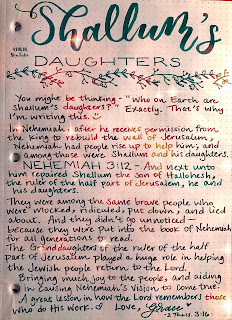 Shallum's
DAUGHTERS
You might be thinking - "Who on Earth are
Shallum's daughters?" Exactly. That's why
I'm writing this.
In Nehemiah, after he receive permission from
the King to rebuild the wall of Jerusalem,
Nehemiah had people rise up to help him, and
among those were Shallum and his daughters.
NEHEMIAH 3:12 - And next unto
him repaired Shallum the son of Hallohesh,
the ruler of the half part of Jerusalem, he and
his daughters.
They were among the same brave people who
were mocked, ridiculed, put down, and lied
about. And they didn't go unnoticed
because they were put into the book of Nehemiah
for all generations to read.
The Granddaughters of the ruler of the half
part of Jerusalem played a huge role in helping
the Jewish people return to the Lord.
Bringing much joy to the people, and aiding
in causing Nehemiah's vision to come true.
A great lesson in how the Lord remembers those
who do His work. Love, Grace
2 Thess. 3:16